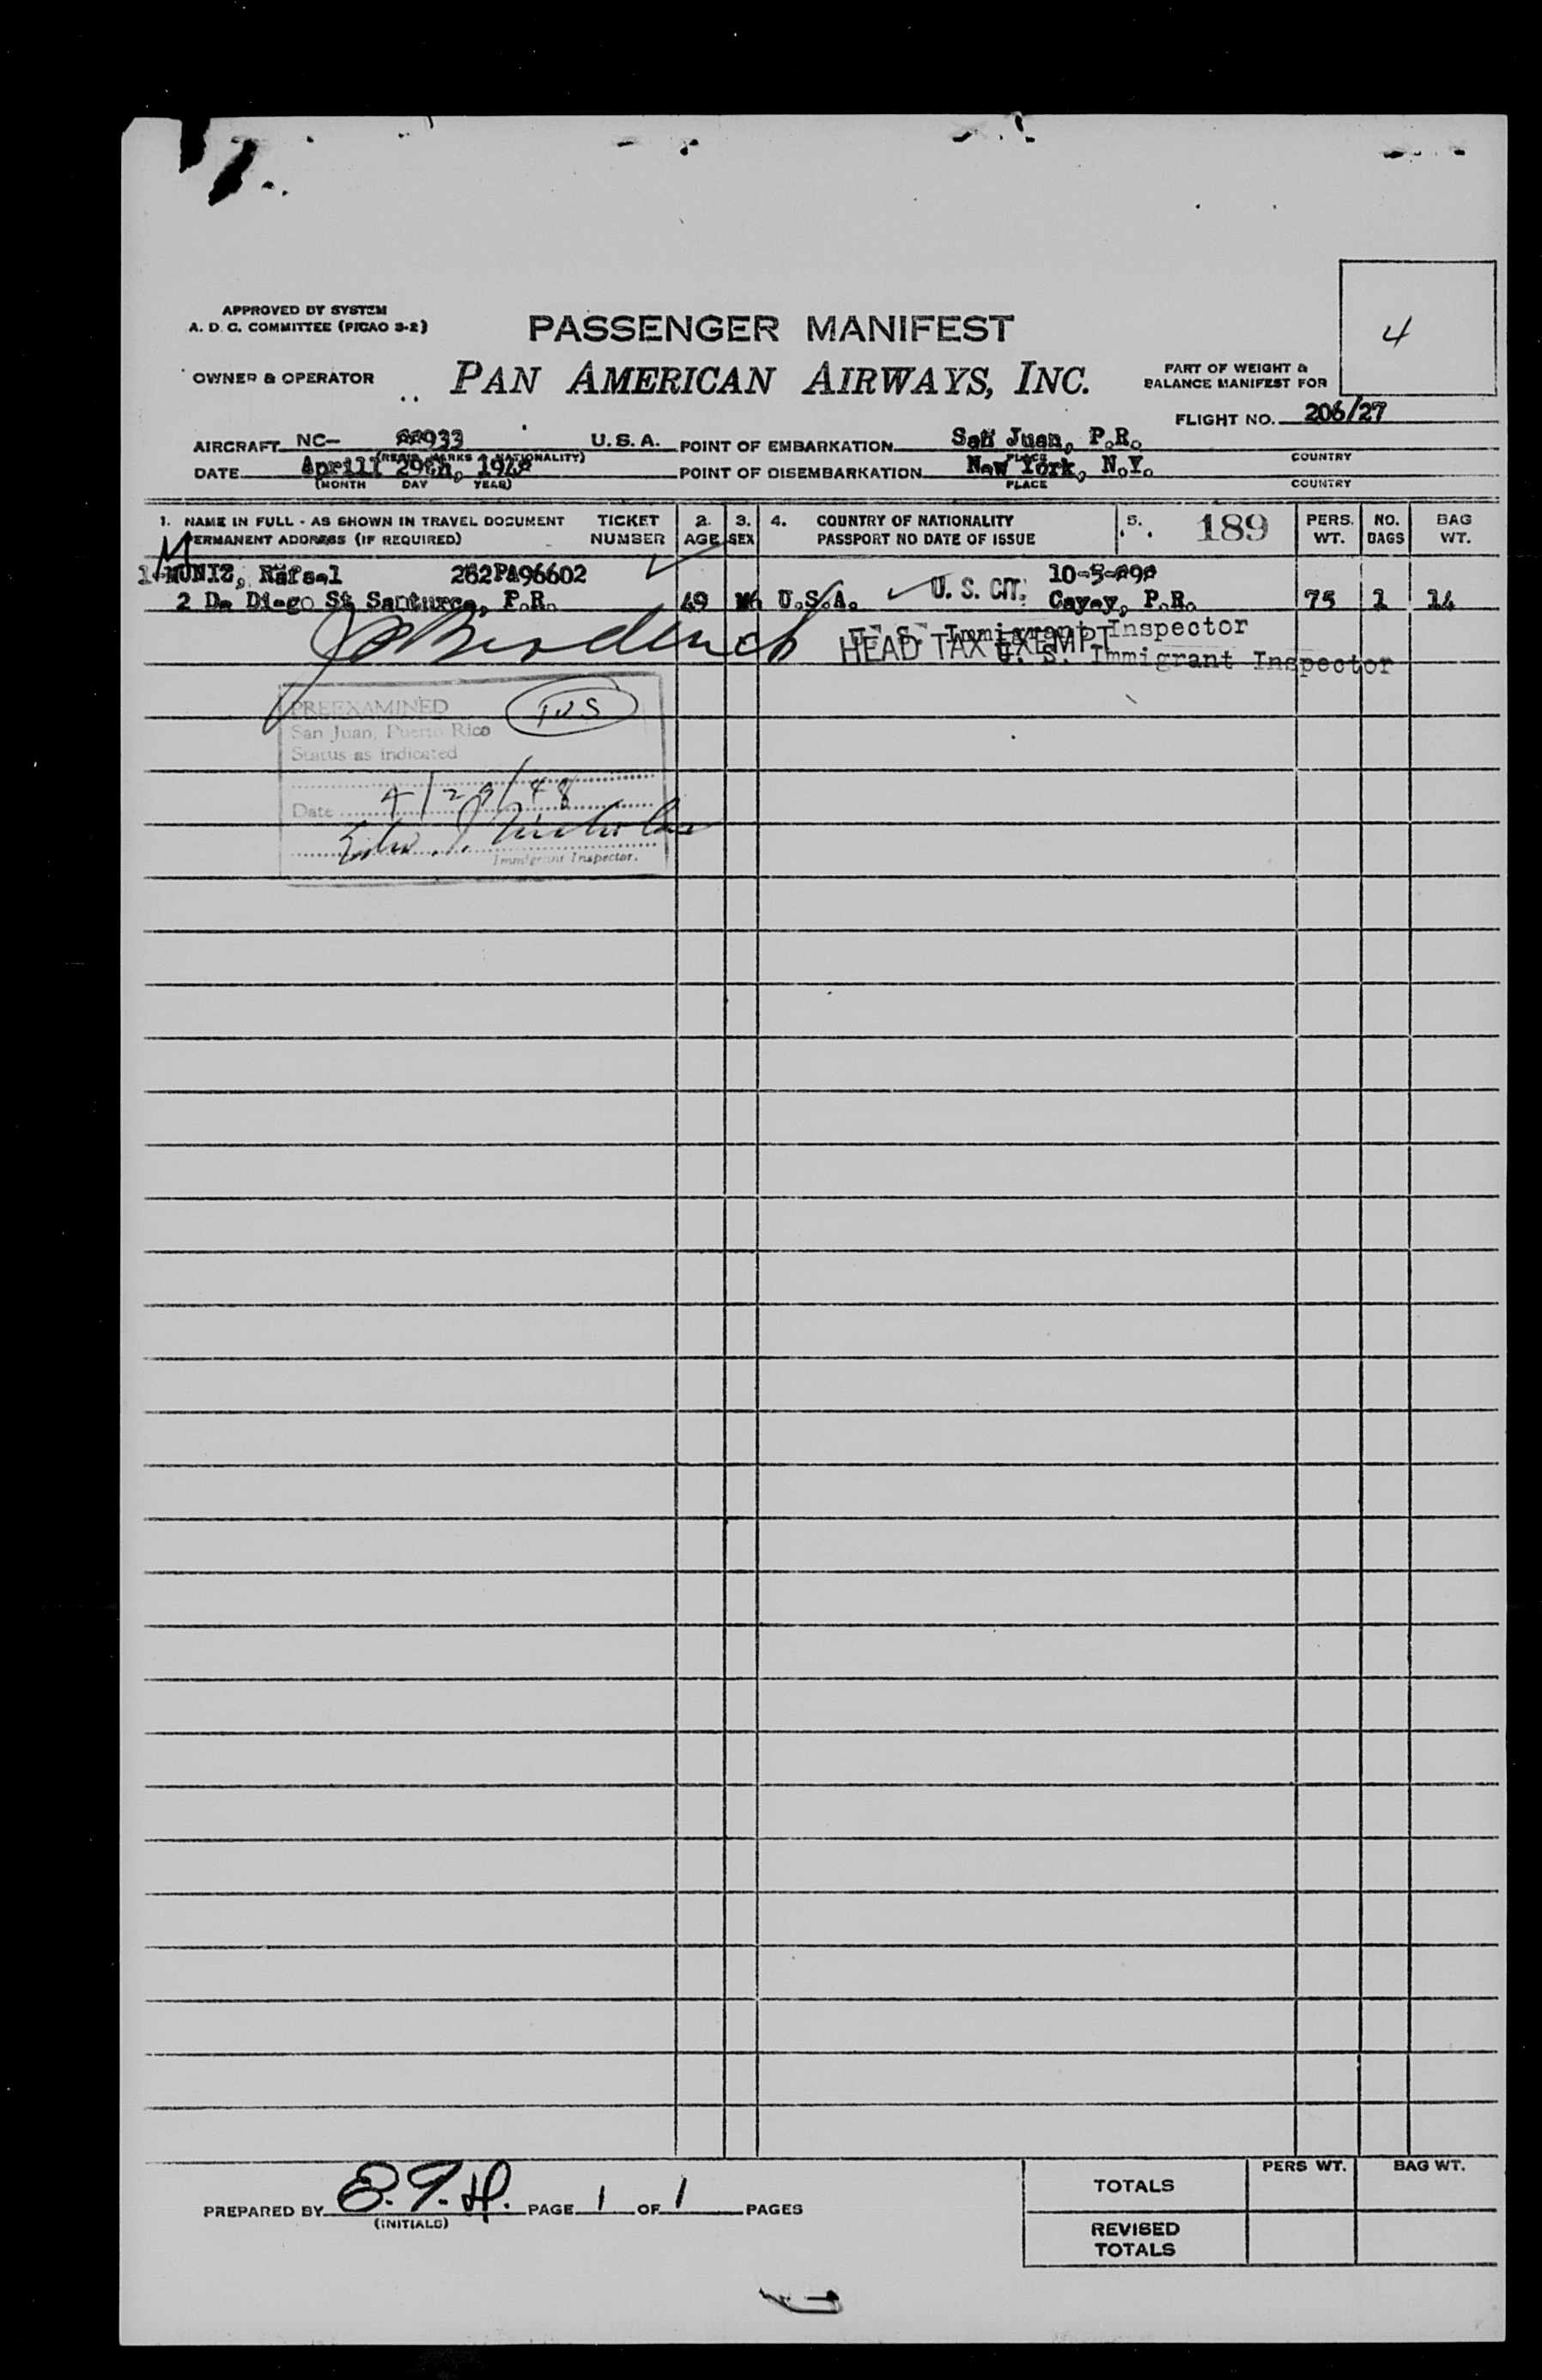 APPROVED BY SYSTEM
A. D. C. COMMITTEE (PICAO 3-2)
PASSENGER MANIFEST
4
OWNER & OPERATOR
PAN AMERICAN AIRWAYS, INC.
PART OF WEIGHT &
BALANCE MANIFEST FOR
FLIGHT NO. 206/27
AIRCRAFT NC- 933 U.S.A. POINT OF EMBARKATION San Juan, P.R.
(REGIS. MARKS & NATIONALITY) PLACE COUNTRY
DATE April 29th, 1948 POINT OF DISEMBARKATION New York, N.Y.
(MONTH DAY YEAR) PLACE COUNTRY
1. NAME IN FULL - AS SHOWN IN TRAVEL DOCUMENT TICKET 2. 3. 4. COUNTRY OF NATIONALITY 5. 189 PERS. NO. BAG
PERMANENT ADDRESS (IF REQUIRED) NUMBER AGE SEX PASSPORT NO DATE OF ISSUE WT. BAGS WT.
M
1-MUNIZ, Rafael 282PA96602 10-5-898
2 De Diego St Santurce, P.R. 49 M. U.S.A. U. S. CIT. Cayey, P.R. 75 1 14
U. S. Immigrant Inspector
HEAD TAX EXEMPT
U. S. Immigrant Inspector
PREEXAMINED
San Juan, Puerto Rico
Status as indicated
Date 4/29/48
Immigrant Inspector.
PREPARED BY E.T.H. PAGE 1 OF 1 PAGES
(INITIALS)
PERS WT. BAG WT.
TOTALS
REVISED
TOTALS